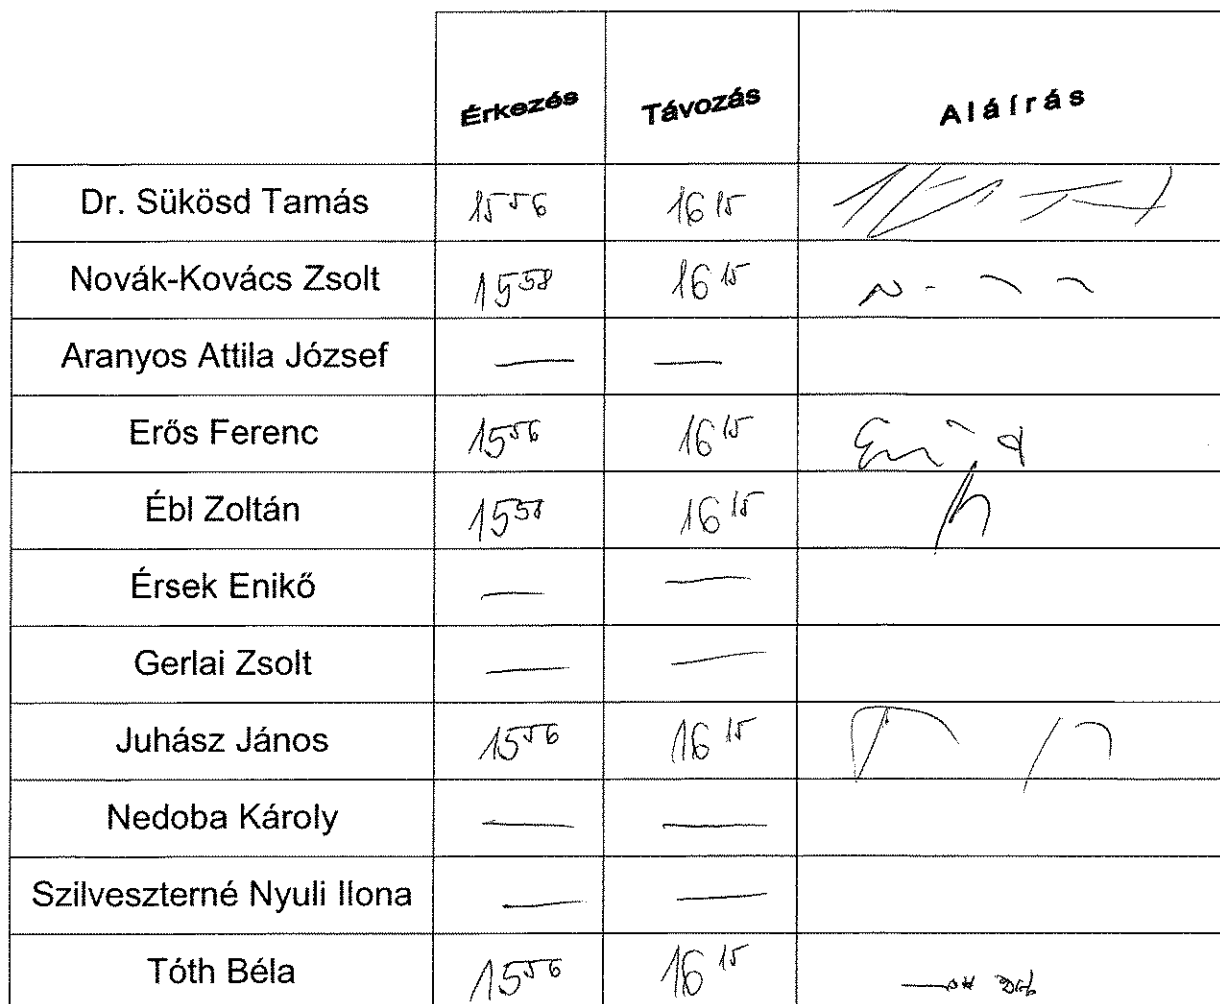 Érkezés Távozás Aláírás
Dr. Sükösd Tamás 15 56 16 15
Novák-Kovács Zsolt 15 58 16 15
Aranyos Attila József — —
Erős Ferenc 15 56 16 15
Ébl Zoltán 15 58 16 15
Érsek Enikő — —
Gerlai Zsolt — —
Juhász János 15 56 16 15
Nedoba Károly — —
Szilveszterné Nyuli Ilona — —
Tóth Béla 15 56 16 15